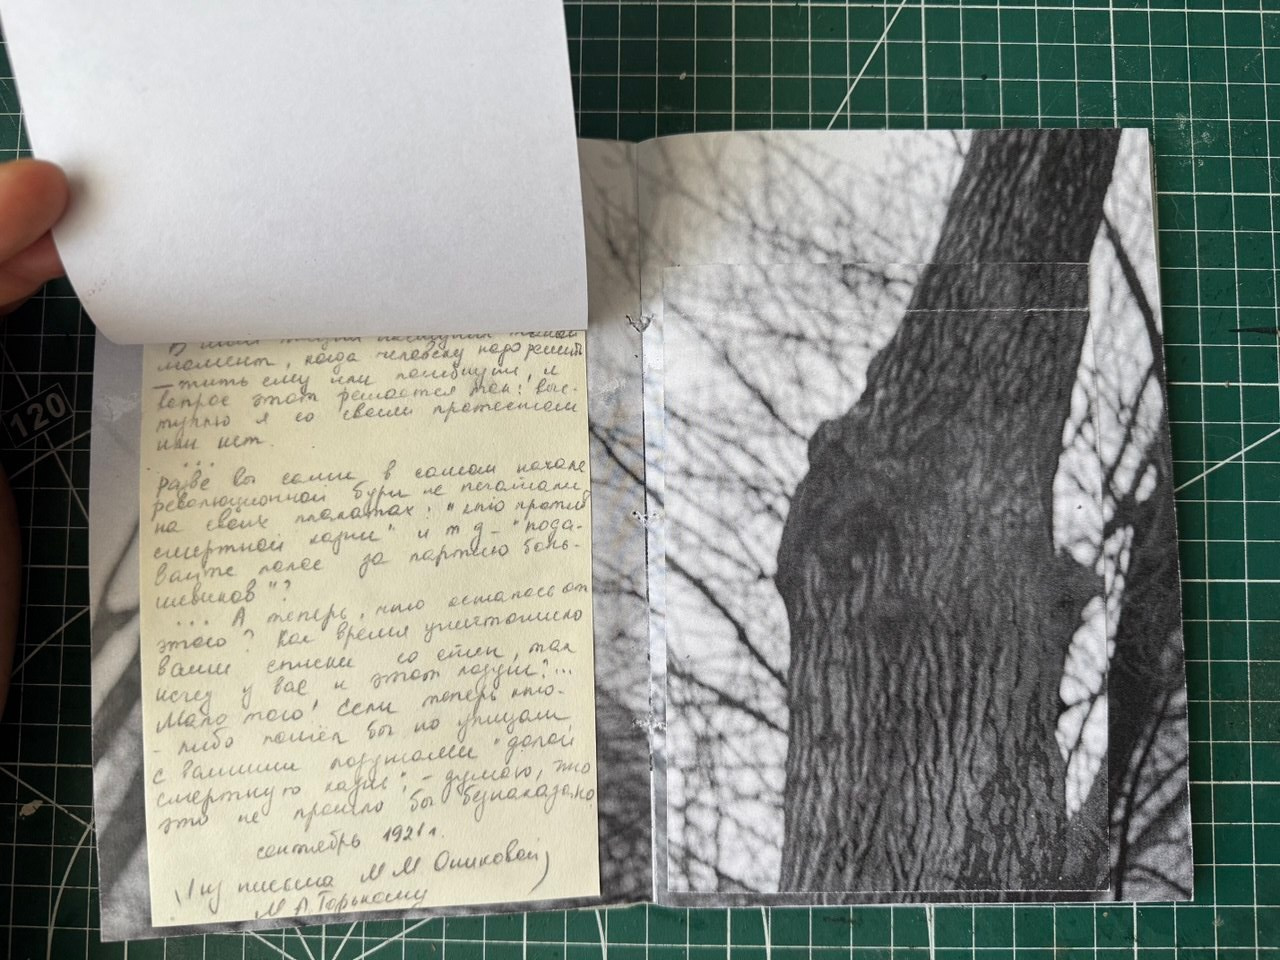 120
В моей жизни наступил такой
момент, когда человеку надо решить
– жить ему или погибнуть, и
вопрос этот решается так: выс-
туплю я со своим протестом
или нет.
...
разве вы сами в самом начале
революционной бури не печатали
на своих плакатах: "кто против
смертной казни" и т д – "пода-
вайте голос за партию боль-
шевиков"?
... А теперь, что осталось от
этого? Как время уничтожило
ваши списки со стен, так
исчез у вас и этот лозунг?...
Мало того! Если теперь кто-
-либо пошёл бы по улицам
с вашими лозунгами "долой
смертную казнь" – думаю, это
это не прошло бы безнаказанно
сентябрь 1921 г.
(из письма М М
М А. Горькому